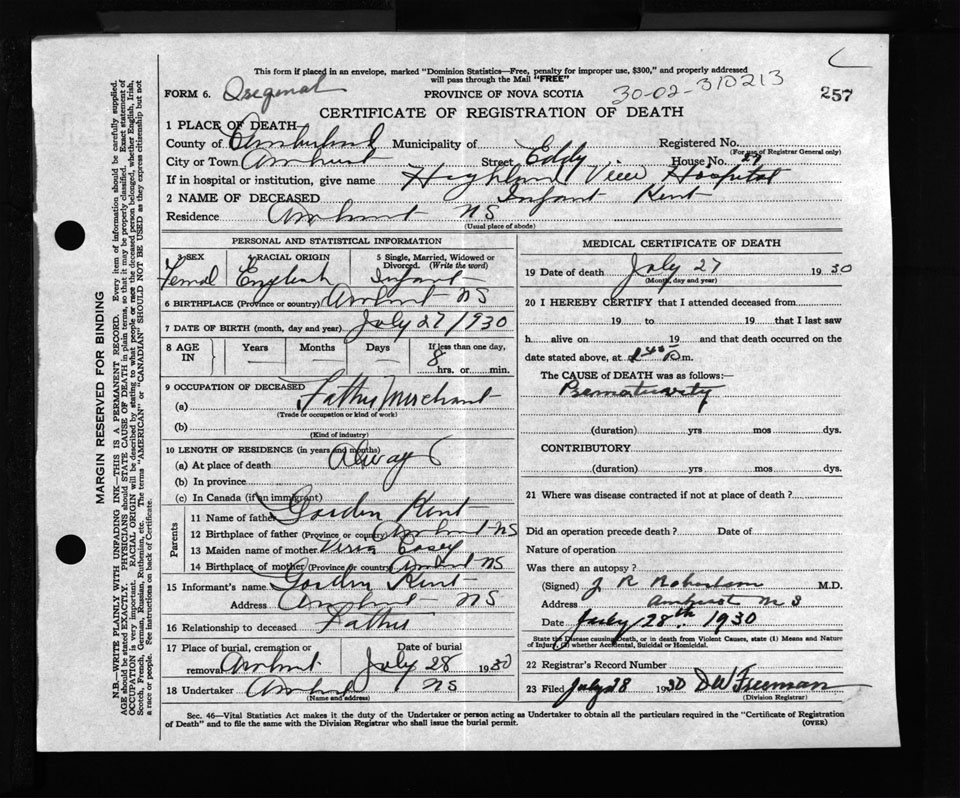 This form if placed in an envelope, marked "Dominion Statistics—Free, penalty for improper use, $300," and properly addressed
will pass through the Mail "FREE"
FORM 6.
PROVINCE OF NOVA SCOTIA
30-02-310213
257
CERTIFICATE OF REGISTRATION OF DEATH
1 PLACE OF DEATH
County of Cumberland Municipality of Registered No.
(For use of Registrar General only)
City or Town Amherst Street Eddy House No.
If in hospital or institution, give name Highland View Hospital
2 NAME OF DECEASED Infant Kent
Residence Amherst NS
(Usual place of abode)
PERSONAL AND STATISTICAL INFORMATION
3 SEX 4 RACIAL ORIGIN 5 Single, Married, Widowed or Divorced. (Write the word)
Femal English Infant
6 BIRTHPLACE (Province or country) Amherst NS
7 DATE OF BIRTH (month, day and year) July 27/1930
8 AGE IN Years Months Days If less than one day,
8 hrs. or min.
9 OCCUPATION OF DECEASED
(a) Father Merchant
(Trade or occupation or kind of work)
(b)
(Kind of industry)
10 LENGTH OF RESIDENCE (in years and months)
(a) At place of death Always
(b) In province
(c) In Canada (if an immigrant)
Parents
11 Name of father Gordon Kent
12 Birthplace of father (Province or country) Amherst NS
13 Maiden name of mother Casey
14 Birthplace of mother (Province or country) Amherst NS
15 Informant's name Gordon Kent
Address Amherst NS
16 Relationship to deceased Father
17 Place of burial, cremation or removal Amherst Date of burial July 28 1930
18 Undertaker Amherst NS
(Name and address)
MEDICAL CERTIFICATE OF DEATH
19 Date of death July 27 1930
(Month, day and year)
20 I HEREBY CERTIFY that I attended deceased from
19 to 19 that I last saw
h alive on 19 and that death occurred on the
date stated above, at m.
The CAUSE of DEATH was as follows:—
Prematurity
(duration) yrs mos dys.
CONTRIBUTORY
(duration) yrs mos dys.
21 Where was disease contracted if not at place of death?
Did an operation precede death? Date of
Nature of operation
Was there an autopsy?
(Signed) J R M.D.
Address Amherst N S
Date July 28th 1930
State the Disease causing Death, or in death from Violent Causes, state (1) Means and Nature
of Injury, (2) whether Accidental, Suicidal or Homicidal.
22 Registrar's Record Number
23 Filed July 28 1930 DW Freeman
(Division Registrar)
Sec. 46—Vital Statistics Act makes it the duty of the Undertaker or person acting as Undertaker to obtain all the particulars required in the "Certificate of Registration
of Death" and to file the same with the Division Registrar who shall issue the burial permit.
(OVER)
MARGIN RESERVED FOR BINDING
N.B.—WRITE PLAINLY WITH UNFADING INK—THIS IS A PERMANENT RECORD. Every item of information should be carefully supplied.
AGE should be stated EXACTLY. PHYSICIANS should STATE CAUSE OF DEATH in plain terms, so that it may be properly classified. Exact statement of
OCCUPATION is very important. RACIAL ORIGIN will be described by stating to what people or race the deceased person belonged, whether English, Irish,
Scotch, French, German, Russian, Ruthenian, etc. The terms "AMERICAN" or "CANADIAN" SHOULD NOT BE USED as they express citizenship but not
a race or people. See instructions on back of Certificate.